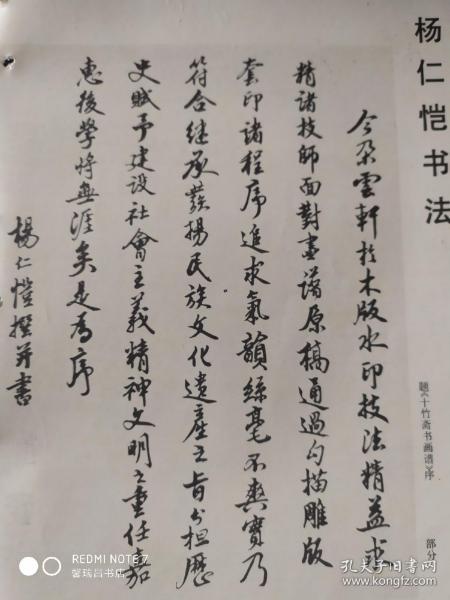 杨仁恺书法
题《十竹斋书画谱》序
部分
今朵雲軒於木版水印技法精益求
精諸技師面對畫譜原稿通過勾描雕版
套印諸程序追求氣韻絲毫不爽實乃
符合继承發揚民族文化遺產之旨分担歷
史賦予建设社會主義精神文明之重任嘉
惠後學將無涯矣是為序
楊仁愷撰并書
REDMI NOTE 7
馨瑞昌书店
孔夫子旧书网